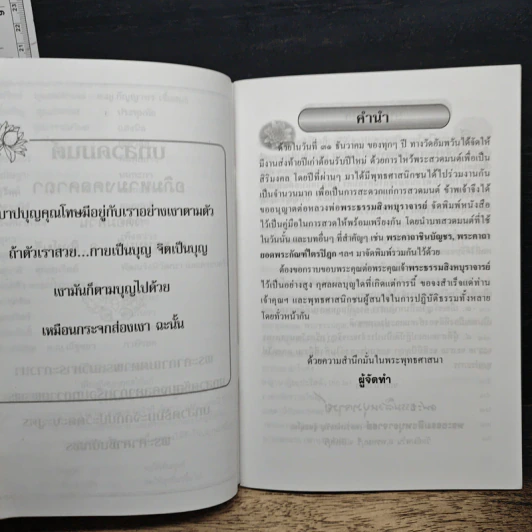 บาปบุญคุณโทษมีอยู่กับเราอย่างเงาตามตัว
ถ้าตัวเราสวย...กายเป็นบุญ จิตเป็นบุญ
เงามันก็ตามบุญไปด้วย
เหมือนกระจกส่องเงา ฉะนั้น
คำนำ
ด้วยในวันที่ ๓๑ ธันวาคม ของทุกๆ ปี ทางวัดอัมพวันได้จัดให้
มีงานส่งท้ายปีเก่าต้อนรับปีใหม่ ด้วยการไหว้พระสวดมนต์เพื่อเป็น
สิริมงคล โดยปีที่ผ่านๆ มาได้มีพุทธศาสนิกชนได้ไปร่วมงานกัน
เป็นจำนวนมาก เพื่อเป็นการสะดวกแก่การสวดมนต์ ข้าพเจ้าจึงได้
ขออนุญาตต่อหลวงพ่อพระธรรมสิงหบุราจารย์ จัดพิมพ์หนังสือ
ไว้เป็นคู่มือในการสวดให้พร้อมเพรียงกัน โดยนำบทสวดมนต์ที่ใช้
ในวันนั้น และบทอื่นๆ ที่สำคัญๆ เช่น พระคาถาชินบัญชร, พระคาถา
ยอดพระกัณฑ์ไตรปิฎก ฯลฯ มาจัดพิมพ์รวมกันไว้ด้วย
ต้องขอกราบขอบพระคุณต่อพระคุณเจ้าพระธรรมสิงหบุราจารย์
ไว้เป็นอย่างสูง กุศลผลบุญใดที่เกิดแต่การนี้ ขอจงสำเร็จแด่ท่าน
เจ้าคุณฯ และพุทธศาสนิกชนผู้สนใจในการปฏิบัติธรรมทั้งหลาย
โดยทั่วหน้ากัน
ด้วยความสำนึกมั่นในพระพุทธศาสนา
ผู้จัดทำ